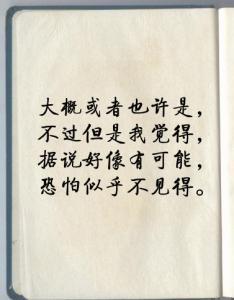 大概或者也许是，
不过但是我觉得，
据说好像有可能，
恐怕似乎不见得。